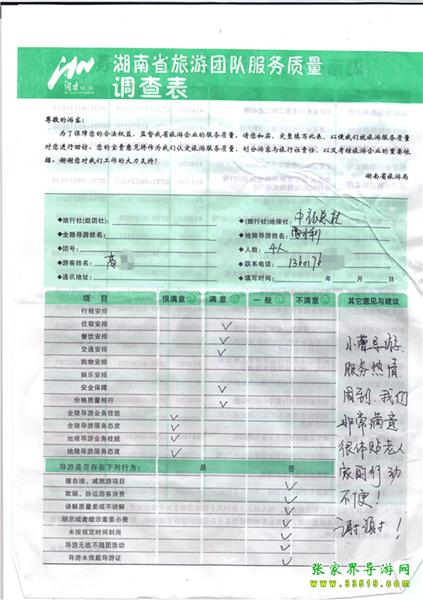 湖南省旅游团队服务质量
调查表
尊敬的游客:
为了保障您的合法权益,监督我省旅游企业的服务质量,请您如实、完整填写此表,以便我们就旅游服务质量
对您进行回访。您的宝贵意见将作为我们认定旅游服务质量、划分游客与旅行社责任、以及考核旅游企业的重要依
据。谢谢您对我们工作的大力支持!
湖南省旅游局
◆旅行社(组团社): ◆(旅行社)地接社:
◆全陪导游姓名: ◆地陪导游姓名:
◆团号: ◆人数: 4人
◆游客姓名: ◆联系电话:
◆通讯地址: ◆填写时间: 年 月 日
项 目 很满意 满 意 一 般 不满意 其它意见与建议
行程安排
住宿安排 ✓
餐饮安排 ✓
交通安排 ✓
购物安排
娱乐安排
安全保障 ✓
价格质量相符 ✓
全陪导游业务技能 ✓
全陪导游服务态度 ✓
地陪导游业务技能 ✓
地陪导游服务态度 ✓
导游是否存在下列行为: 是 否
擅自增、减旅游项目 ✓
欺骗、胁迫游客消费 ✓
讲解质量差或不讲解 ✓
明示或者暗示索要小费 ✓
未按规定时间到岗 ✓
导游无故不随团活动 ✓
导游未佩戴导游证 ✓
导游.
服务热情
周到.我们
非常满意
很体贴老人
家
不便!
张家界导游网
www.33519.com